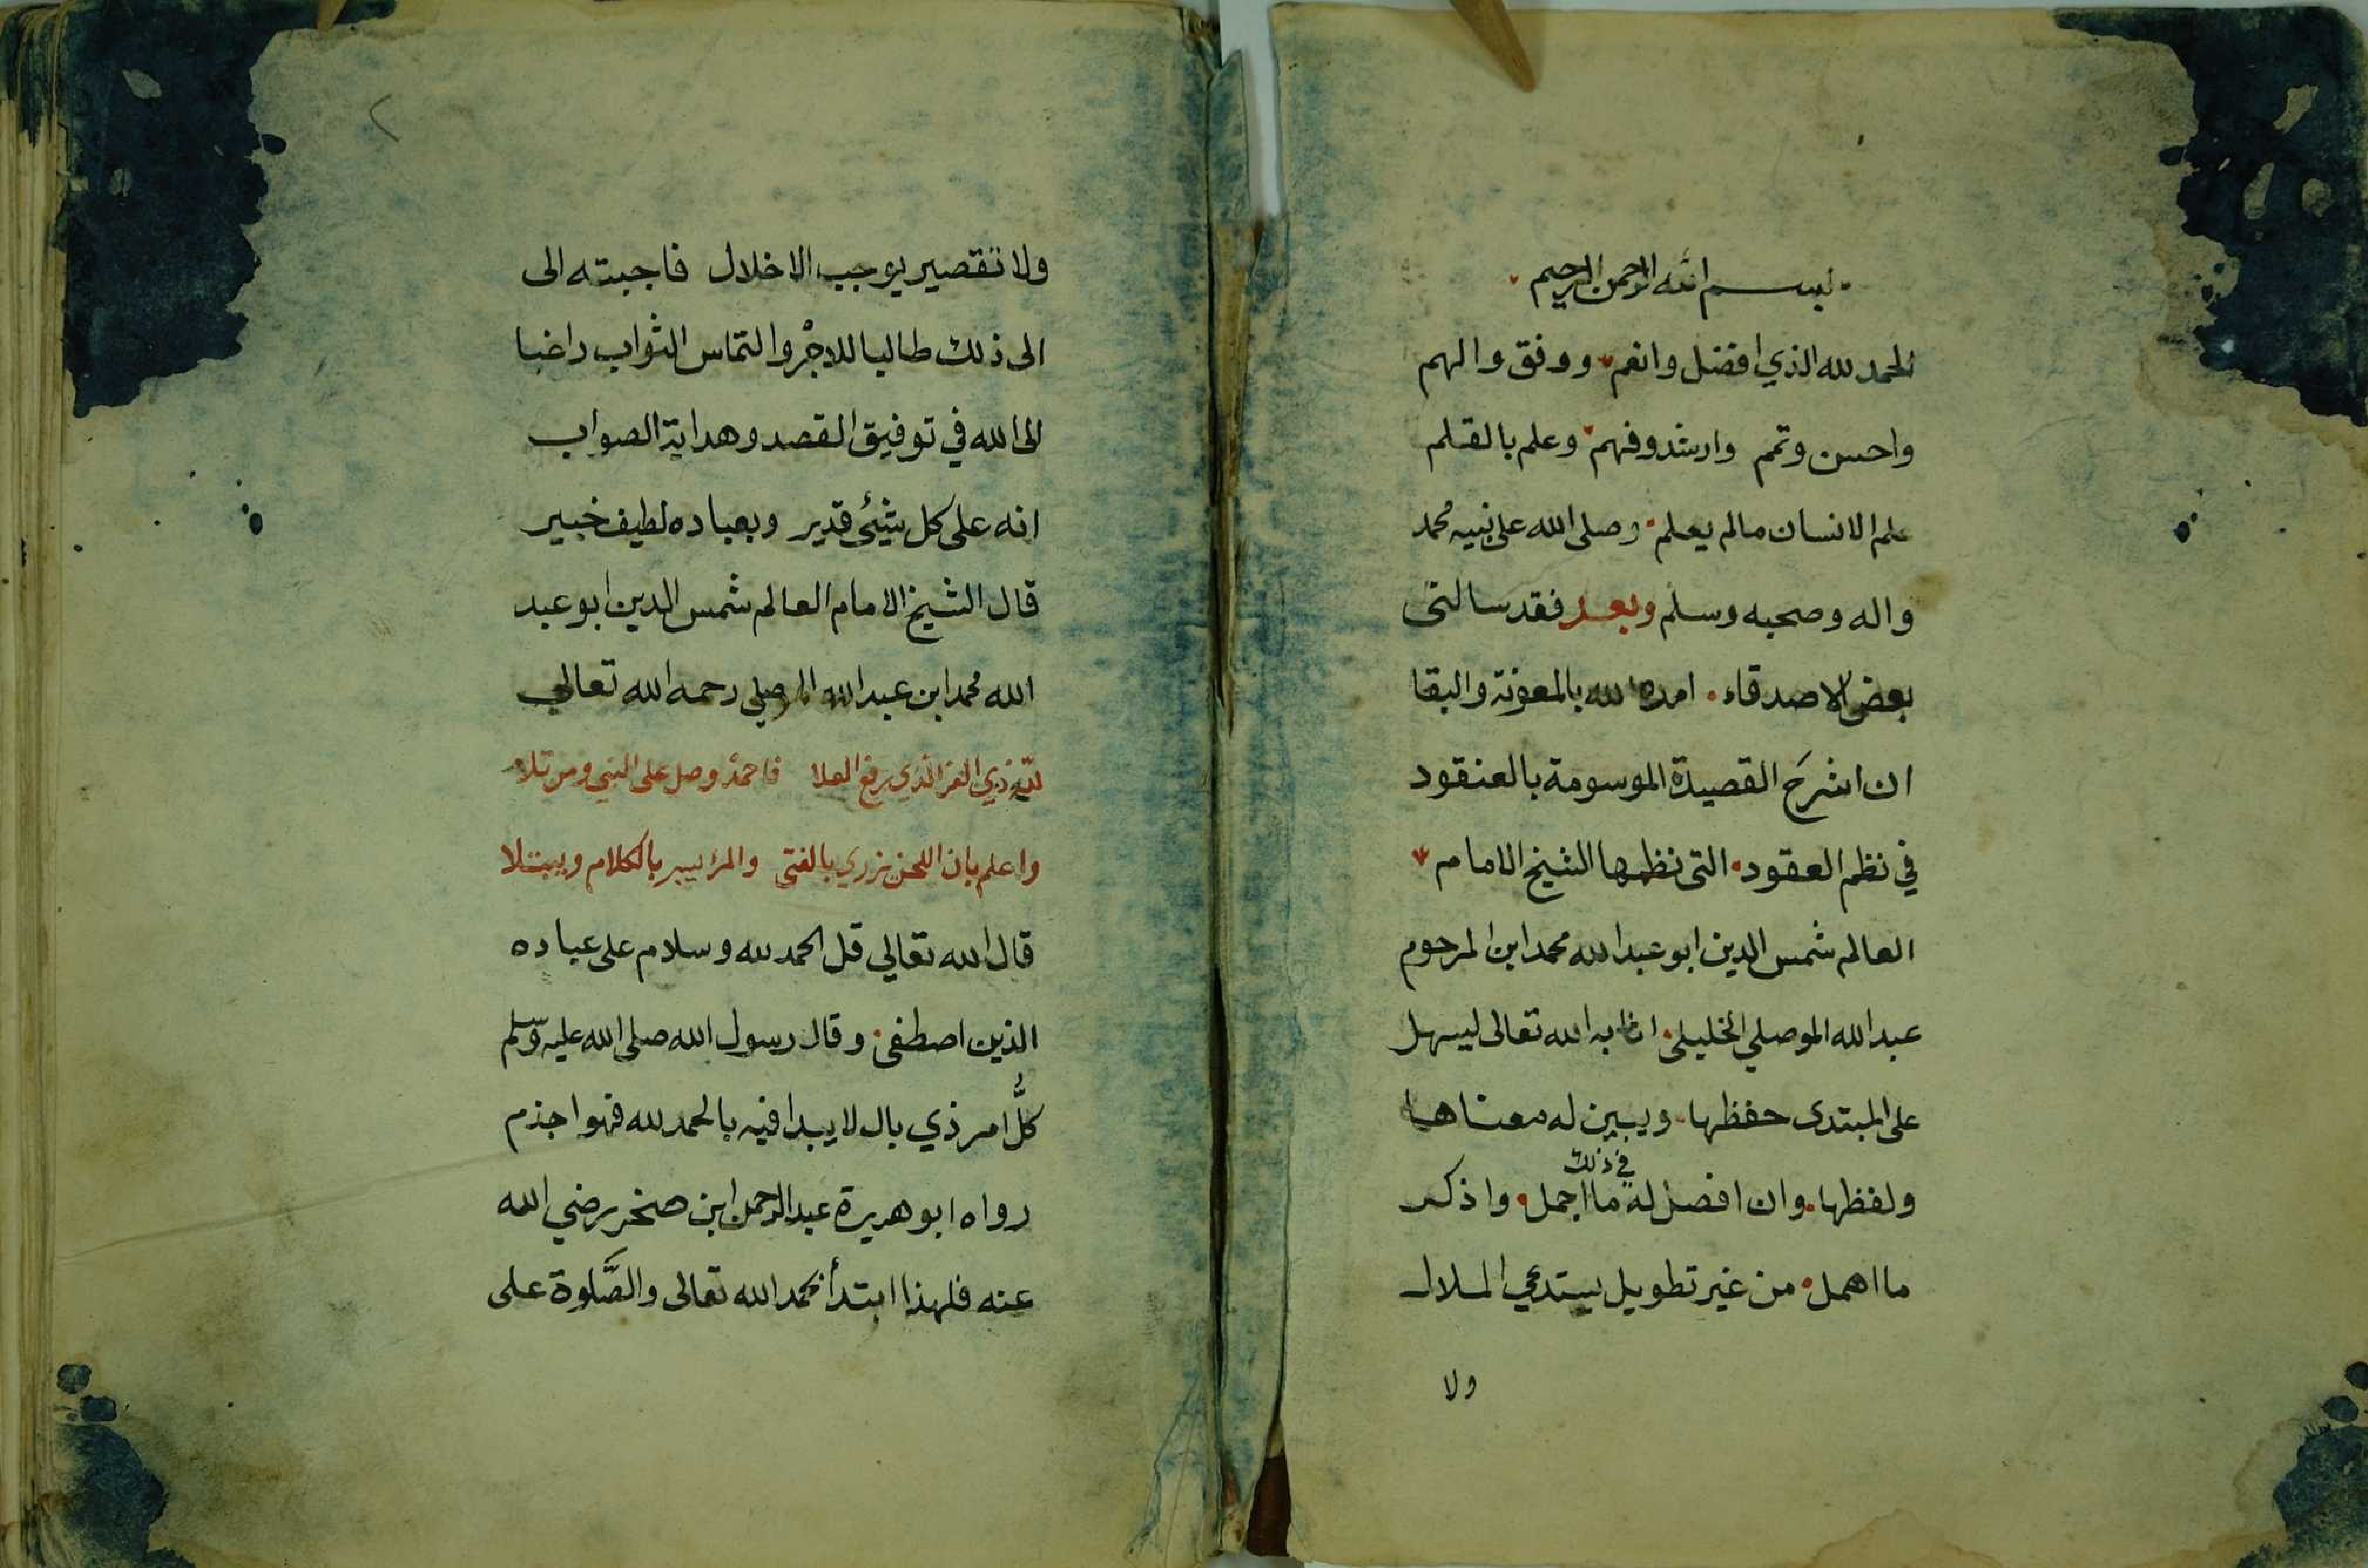 بسم الله الرحمن الرحيم
الحمد لله الذي افضل وانعم ووفق والهم
واحسن وتمم وارشد وفهم وعلم بالقلم
علم الانسان مالم يعلم وصلى الله على نبيه محمد
واله وصحبه وسلم وبعد فقد سالنى
بعض الاصدقاء امده الله بالمعونة والبقا
ان اشرحَ القصيدة الموسومة بالعنقود
في نظم العقود التى نظمها الشيخ الامام
العالم شمس الدين ابو عبد الله محمد ابن المرحوم
عبد الله الموصلي الخليلى اثابه الله تعالى ليسهل
على المبتدى حفظها ويبين له معناها
في ذلك
ولفظها وان افصل له ما اجمل واذكر
ما اهمل من غير تطويل يستدعي الملال
ولا
٢
ولا تقصير يوجب الاخلال فاجبته الى
الى ذلك طالبا للاجْر والتماس الثواب راغبا
الى الله في توفيق القصد وهداية الصواب
انه على كل شيئ قدير وبعباده لطيف خبير
قال الشيخ الامام العالم شمس الدين ابو عبد
الله محمد ابن عبد الله الموصلي رحمه الله تعالي
لله ذي العز الذي رفع العلا فاحمدْ وصل على النبي ومن تلا
واعلم بان اللحن يزري بالفتى والمرء يسبر بالكلام ويبتلا
قال الله تعالي قل الحمد لله وسلام على عباده
الذين اصطفى وقال رسول الله صلى الله عليه وسلم
كلُّ امر ذي بال لا يبدا فيه بالحمد لله فهو اجذم
رواه ابو هريرة عبد الرحمن ابن صخر رضي الله
عنه فلهذا ابتدأ بحمد الله تعالى والصَّلوة على